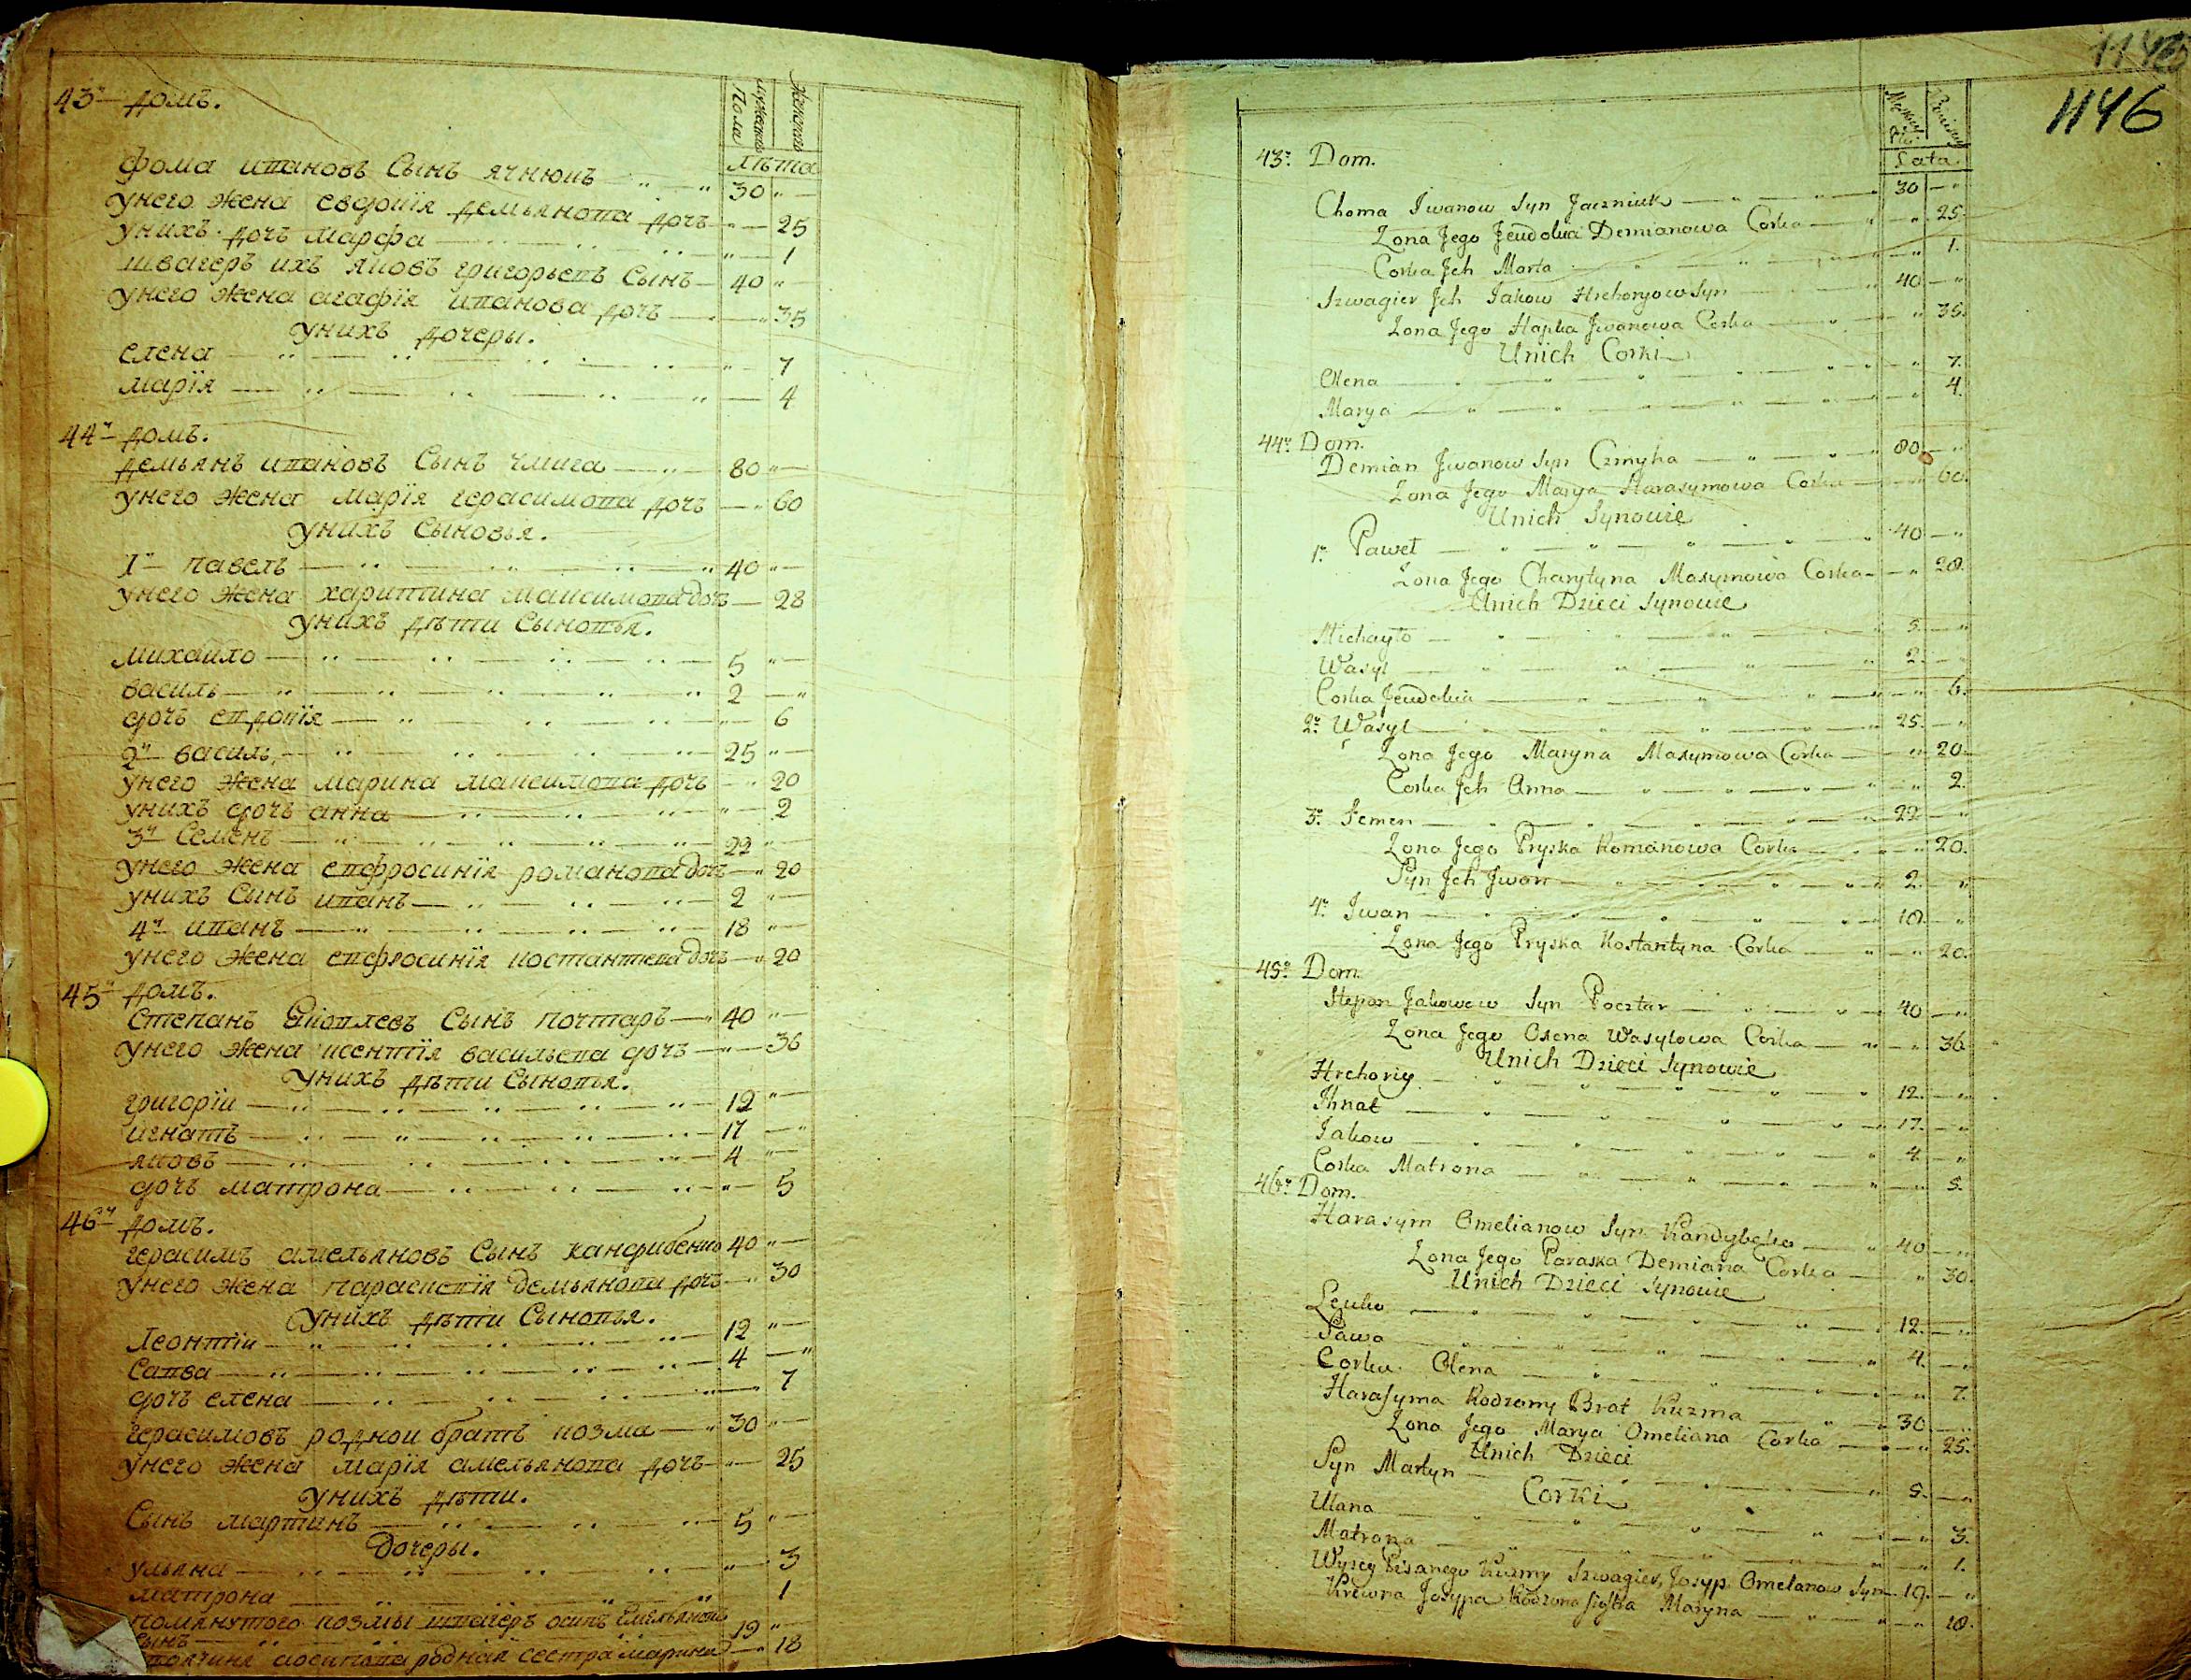 43й домъ.
мужеска Пола
женска
лѣта
фома ивановъ Сынъ ячнюкъ 30
унего жена евдокїя демьянова дочъ 25
унихъ дочъ марфа 1
швагеръ ихъ яковъ григорьевъ Сынъ 40
унего жена агафїя иванова дочъ 35
унихъ дочеры.
елена 7
марїя 4
44й домъ.
демьянъ ивановъ Сынъ чмига 80
унего жена марїя герасимова дочъ 60
унихъ Сыновья.
1й павелъ 40
унего жена харитина максимова дочъ 28
унихъ дѣти Сыновья.
михаило 5
василь 2
дочъ евдокїя 6
2й василь 25
унего жена марина максимова дочъ 20
унихъ дочъ анна 2
3й Семенъ 22
унего жена евфросинїя романова дочъ 20
унихъ Сынъ иванъ 2
4й иванъ 18
унего жена евфросинїя костантева дочъ 20
45й домъ.
Степанъ Яковлевъ Сынъ почтаръ 40
унего жена ксентїя васильева дочъ 36
унихъ дѣти Сыновья.
григорїи 12
игнатъ 17
яковъ 4
дочъ матрона 5
46й домъ.
герасимъ амельяновъ Сынъ кандибенко 40
унего жена параскевїя демьянова дочъ 30
унихъ дѣти Сыновья.
Леонтїи 12
Савва 4
дочъ елена 7
герасимовъ роднои братъ козма 30
унего жена марїя амельянова дочъ 25
унихъ дѣти.
Сынъ мартинъ 5
дочеры.
ульяна 3
матрона 1
помянутого козмы швагеръ осипъ Емельяновъ
Сынъ 19
осипова родная сестра марина 18
1146
1146
43й Dom.
Lata
Choma Iwanow Syn Jaczniuk 30
Zona Jego Jeudokia Demianowa Corka 25.
Corka Jch Marta 1.
Szwagier Jch Jakow Hrehoryow Syn 40
Zona Jego Hapka Jwanowa Corka 35.
Unich Corki
Olena 7.
Marya 4.
44й Dom.
Demian Jwanow Syn Czmyha 80
Zona Jego Marya Harasymowa Corka 60.
Unich Synowie
1й Paweł 40
Zona Jego Charytyna Maxymowa Corka 28.
Unich Dzieci Synowie
Michayło 5.
Wasyl 2.
Corka Jeudokia 6.
2й Wasyl 25.
Zona Jego Maryna Maxymowa Corka 20.
Corka Jch Anna 2.
3й Semen 22
Zona Jego Pryska Romanowa Corka 20.
Syn Jch Jwan 2.
4й Iwan 18.
Zona Jego Pryska Kostantyna Corka 20.
45й Dom.
Stepan Jakowow Syn Pocztar 40
Zona Jego Oxena Wasylowa Corka 36.
Unich Dzieci Synowie
Hrehoriy 12.
Ihnat 17.
Jakow 4.
Corka Matrona 5.
46й Dom.
Harasym Omelianow Syn Kandybeko 40
Zona Jego Paraska Demiana Corka 30.
Unich Dzieci Synowie
Leuko 12.
Sawa 4.
Corka Olena 7.
Harasyma Rodzony Brat Kuzma 30
Zona Jego Marya Omeliana Corka 25.
Unich Dzieci
Syn Martyn 5.
Corki
Ulana 3.
Matrona 1.
Wyżey Pisanego Kuzmy Szwagier Josyp Omelanow Syn 19.
Krewna Josypa Rodzona Siostra Maryna 18.